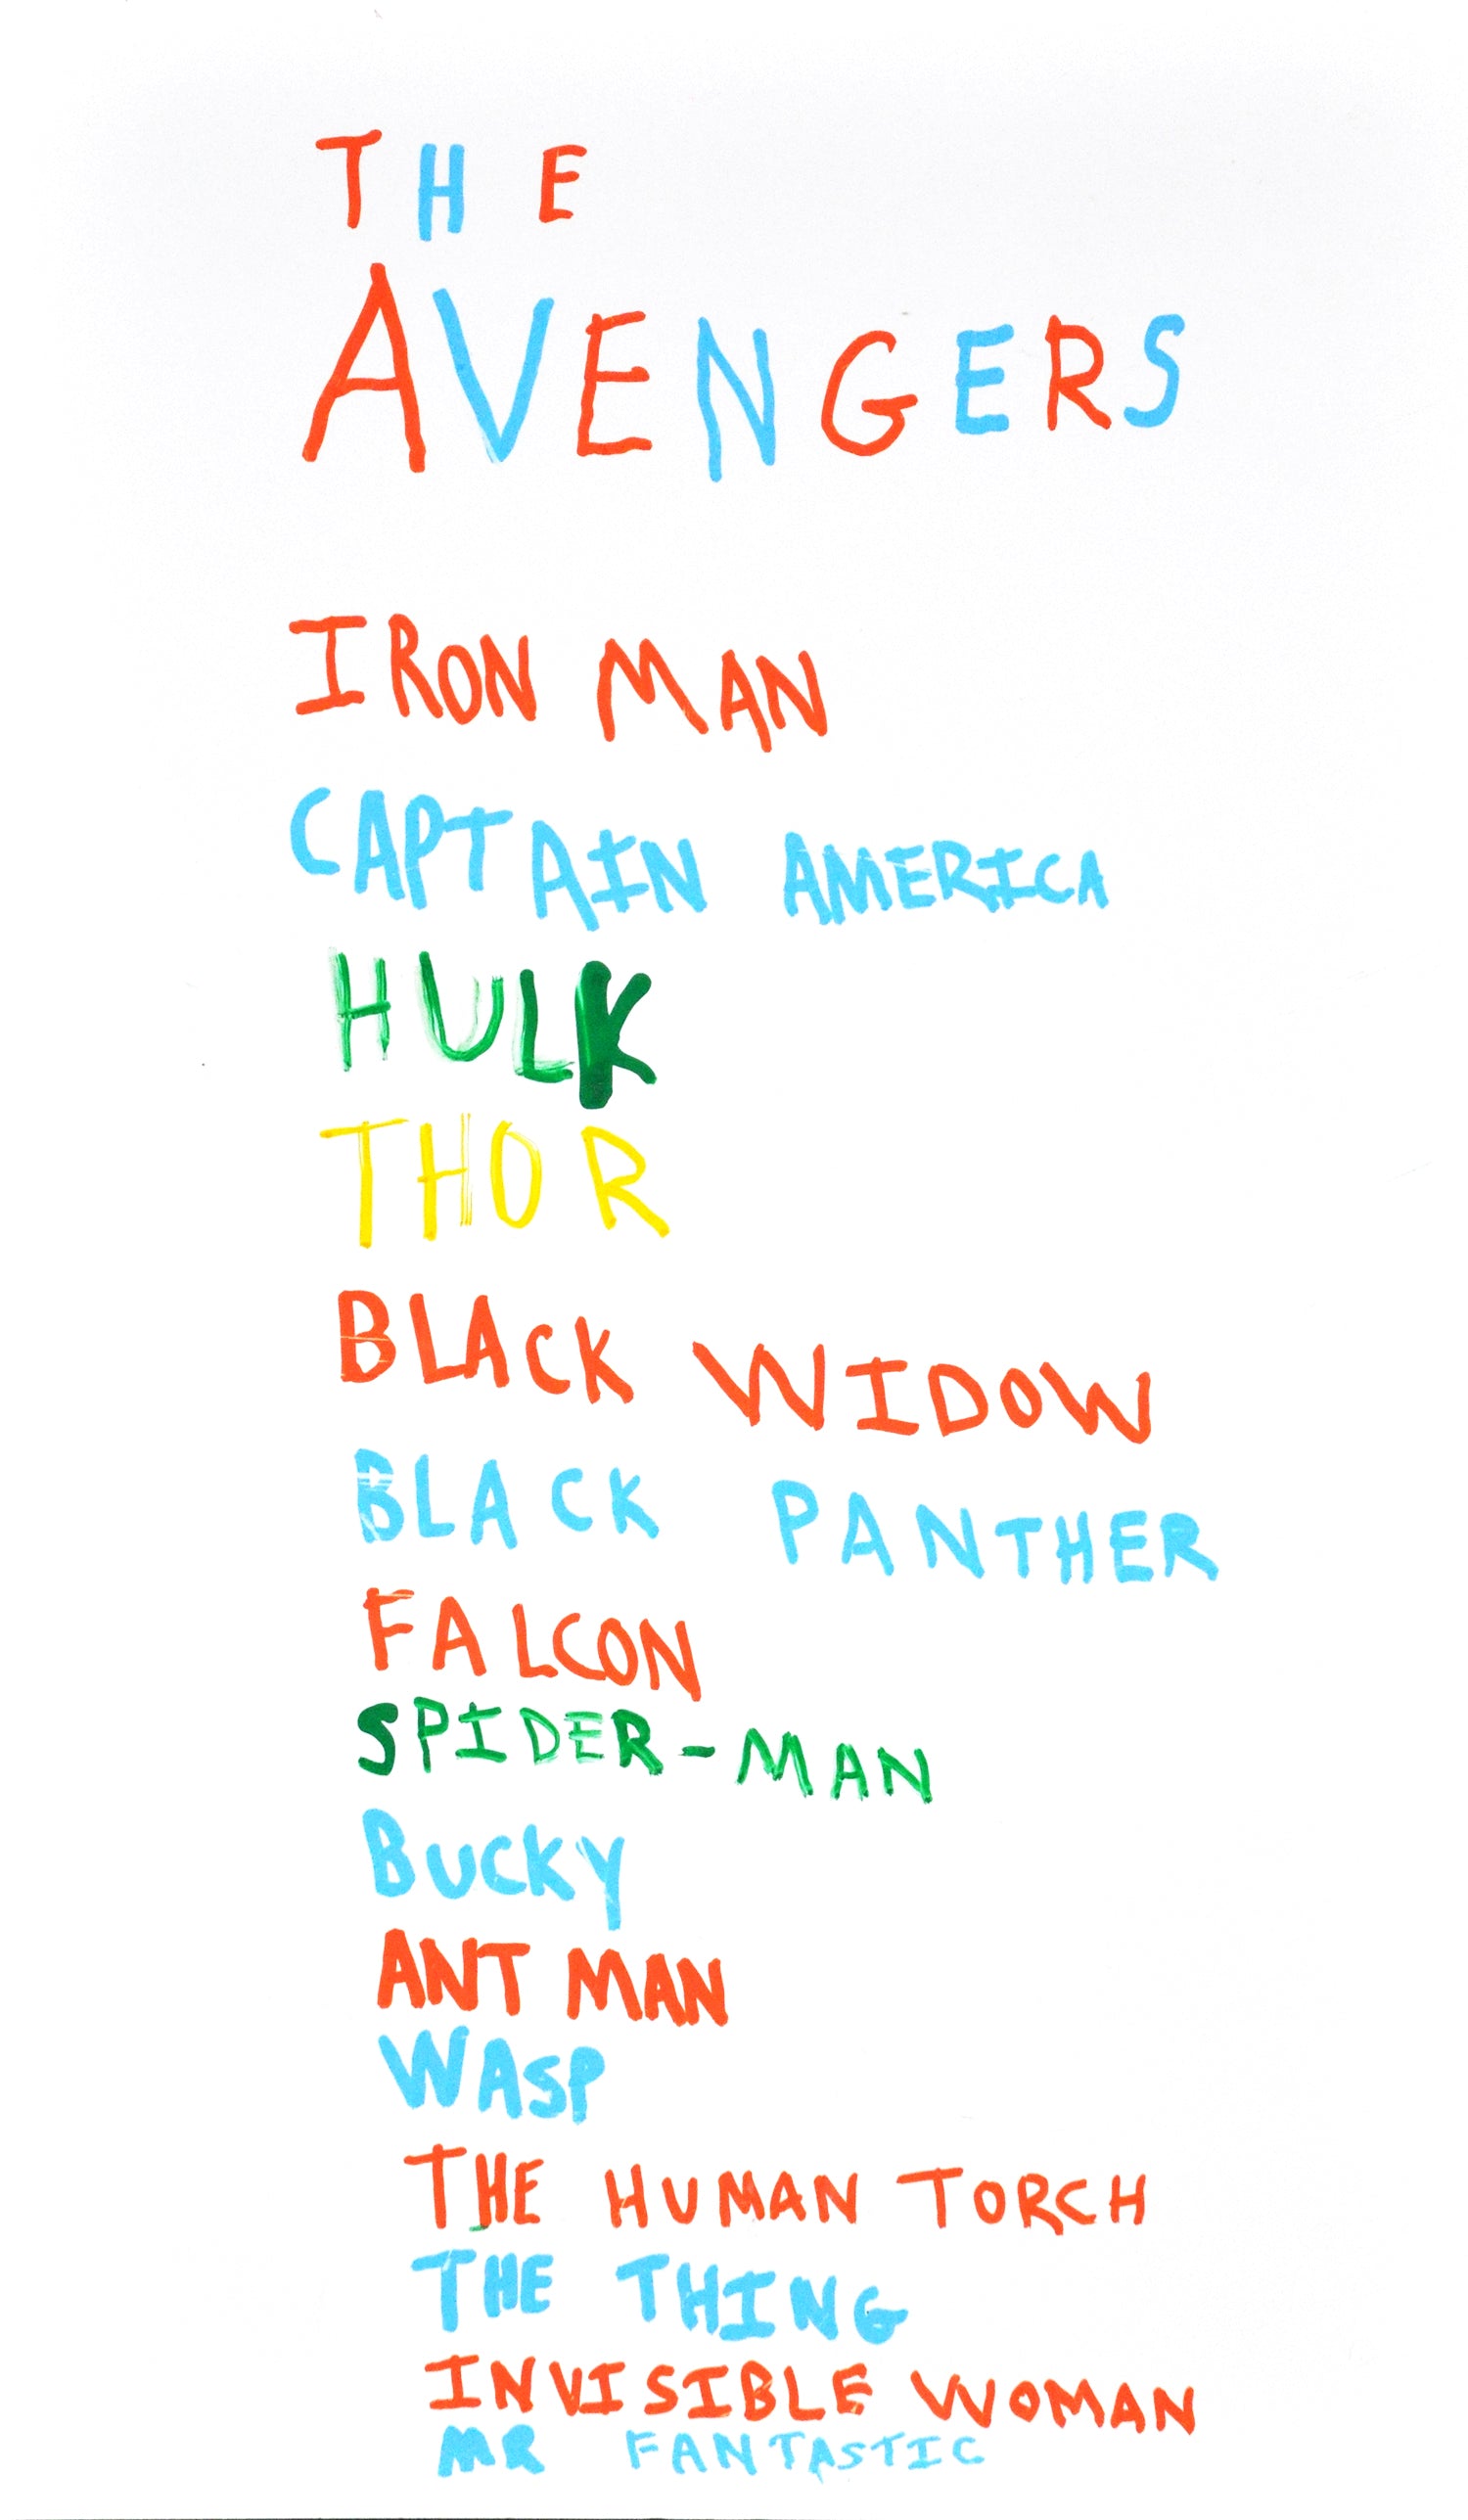 THE
AVENGERS
IRON MAN
CAPTAIN AMERICA
HULK
THOR
BLACK WIDOW
BLACK PANTHER
FALCON
SPIDER-MAN
BUCKY
ANT MAN
WASP
THE HUMAN TORCH
THE THING
INVISIBLE WOMAN
MR FANTASTIC